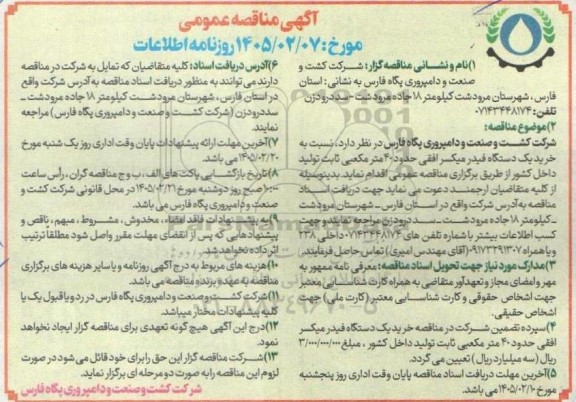 آگهی مناقصه عمومی
مورخ: ۱۴۰۵/۰۲/۰۷ روزنامه اطلاعات
۱)نام و نشانی مناقصه گزار: شرکت کشت و
صنعت و دامپروری پگاه فارس به نشانی: استان
فارس، شهرستان مرودشت کیلومتر ۱۸ جاده مرودشت – سددرودزن
تلفن: ۰۷۱۴۳۴۴۸۱۷۴
۲)موضوع مناقصه:
شرکت کشت و صنعت و دامپروری پگاه فارس در نظر دارد، نسبت به
خرید یک دستگاه فیدر میکسر افقی حدود ۴۰ متر مکعبی ثابت تولید
داخل کشور از طریق برگزاری مناقصه عمومی اقدام نماید. بدینوسیله
از کلیه متقاضیان ارجمند دعوت می نماید جهت دریافت اسناد
مناقصه به آدرس شرکت واقع در استان فارس – شهرستان مرودشت
– کیلومتر ۱۸ جاده مرودشت – سددرودزن مراجعه نمایند و جهت
کسب اطلاعات بیشتر با شماره تلفن های ۰۷۱۴۳۴۴۸۱۷۴ داخلی ۲۳۸
و یا همراه ۰۹۱۷۳۲۹۱۳۰۷ (آقای مهندس امیری) تماس حاصل فرمایند.
۳)مدارک مورد نیاز جهت تحویل اسناد مناقصه: معرفی نامه ممهور به
مهر و امضای مجاز و تعهدآور متقاضی به همراه کارت شناسایی معتبر
جهت اشخاص حقوقی و کارت شناسایی معتبر (کارت ملی) جهت
اشخاص حقیقی.
۴)سپرده تضمین شرکت در مناقصه خرید یک دستگاه فیدر میکسر
افقی حدود ۴۰ متر مکعبی ثابت تولید داخل کشور، مبلغ ۳/۰۰۰/۰۰۰/۰۰۰
ریال (سه میلیارد ریال) تعیین می گردد.
۵)آخرین مهلت دریافت اسناد مناقصه پایان وقت اداری روز پنجشنبه
مورخ ۱۴۰۵/۰۲/۱۰ می باشد.
۶)آدرس دریافت اسناد: کلیه متقاضیان که تمایل به شرکت در مناقصه
دارند می توانند به منظور دریافت اسناد مناقصه به آدرس شرکت واقع
در استان فارس، شهرستان مرودشت کیلومتر ۱۸ جاده مرودشت –
سددرودزن (شرکت کشت و صنعت و دامپروری پگاه فارس) مراجعه
نمایند.
۷)آخرین مهلت ارائه پیشنهادات پایان وقت اداری روز یک شنبه مورخ
۱۴۰۵/۰۲/۲۰ می باشد.
۸)تاریخ بازگشایی پاکت های الف، ب و ج مناقصه گران، رأس ساعت
۱۰:۰۰ صبح روز دوشنبه مورخ ۱۴۰۵/۰۲/۲۱ در محل قانونی شرکت کشت و
صنعت و دامپروری پگاه فارس می باشد.
۹)به پیشنهادات فاقد امضاء، مخدوش، مشروط، مبهم، ناقص و
پیشنهادهایی که پس از انقضای مهلت مقرر واصل شود مطلقا ترتیب
اثر داده نخواهد شد.
۱۰)هزینه های مربوط به درج آگهی روزنامه و یا سایر هزینه های برگزاری
مناقصه به عهده برنده مناقصه می باشد.
۱۱)شرکت کشت و صنعت و دامپروری پگاه فارس در رد و یا قبول یک یا
کلیه پیشنهادات مختار میباشد.
۱۲)درج این آگهی هیچ گونه تعهدی برای مناقصه گزار ایجاد نخواهد
نمود.
۱۳)شرکت مناقصه گزار این حق را برای خود قائل می شود در صورت
لزوم این مناقصه را به صورت دو مرحله ای برگزار نماید.
شرکت کشت و صنعت و دامپروری پگاه فارس